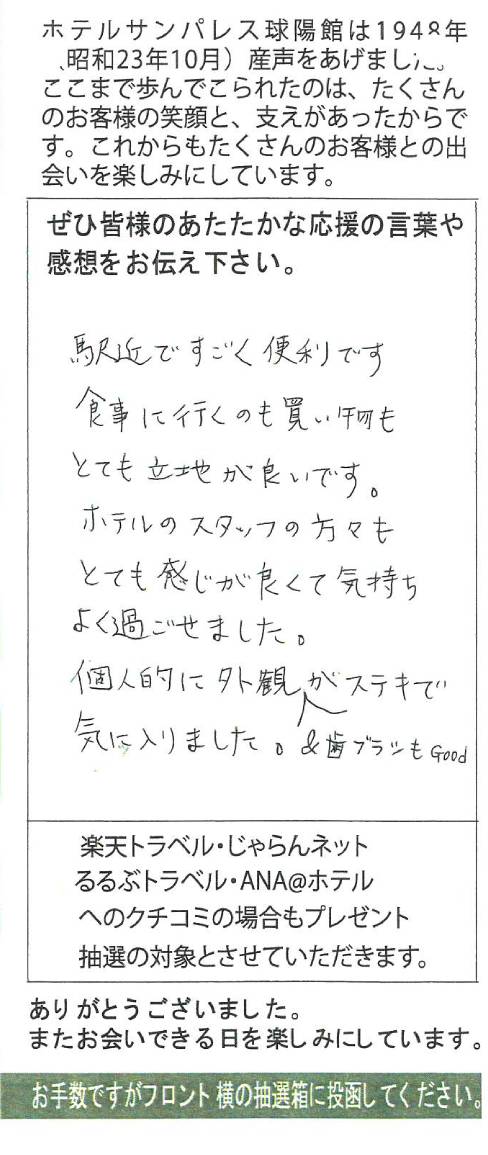 ホテルサンパレス球陽館は1948年
（昭和23年10月）産声をあげました。
ここまで歩んでこられたのは、たくさん
のお客様の笑顔と、支えがあったからで
す。これからもたくさんのお客様との出
会いを楽しみにしています。
ぜひ皆様のあたたかな応援の言葉や
感想をお伝え下さい。
駅近ですごく便利です
食事に行くのも買い物も
とても立地が良いです。
ホテルのスタッフの方々も
とても感じが良くて気持ち
よく過ごせました。
個人的に外観がステキで
気に入りました。&歯ブラシもGood
楽天トラベル・じゃらんネット
るるぶトラベル・ANA@ホテル
へのクチコミの場合もプレゼント
抽選の対象とさせていただきます。
ありがとうございました。
またお会いできる日を楽しみにしています。
お手数ですがフロント横の抽選箱に投函してください。